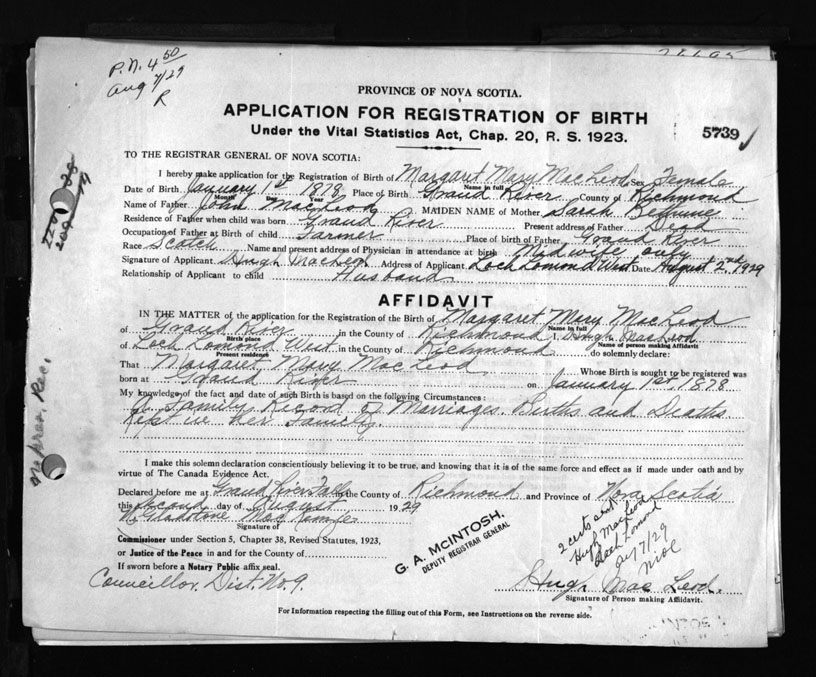 P.N. 4 50
Aug 7/29
R
PROVINCE OF NOVA SCOTIA.
APPLICATION FOR REGISTRATION OF BIRTH
5739
Under the Vital Statistics Act, Chap. 20, R. S. 1923.
TO THE REGISTRAR GENERAL OF NOVA SCOTIA:
I hereby make application for the Registration of Birth of Margaret Mary MacLeod Sex Female
Name in full
Date of Birth January 1st 1878 Place of Birth Grand River County of Richmond
Month Day Year
Name of Father John MacLeod MAIDEN NAME of Mother Sarah
Residence of Father when child was born Grand River Present address of Father Dead
Occupation of Father at Birth of child Farmer Place of birth of Father Grand River
Race Scotch Name and present address of Physician in attendance at birth Midwife only
Signature of Applicant Hugh MacLeod Address of Applicant Loch Lomond West Date August 2nd 1929
Relationship of Applicant to child Husband
AFFIDAVIT
IN THE MATTER of the application for the Registration of the Birth of Margaret Mary MacLeod
Name in full
of Grand River in the County of Richmond I, Hugh MacLeod
Birth place Name of person making Affidavit
of Loch Lomond West in the County of Richmond do solemnly declare:
Present residence
That Margaret Mary MacLeod Whose Birth is sought to be registered was
born at Grand River on January 1st, 1878
My knowledge of the fact and date of such Birth is based on the following Circumstances:
A Family Record of Marriages. Births and Deaths
Kept in her Family.
No prev. Rec.
I make this solemn declaration conscientiously believing it to be true, and knowing that it is of the same force and effect as if made under oath and by
virtue of The Canada Evidence Act.
Declared before me at Grand River Falls in the County of Richmond and Province of Nova Scotia
this second day of August 1929
Signature of
Commissioner under Section 5, Chapter 38, Revised Statutes, 1923,
or Justice of the Peace in and for the County of
If sworn before a Notary Public affix seal.
Councillor. Dist. No 9.
G. A. MCINTOSH.
DEPUTY REGISTRAR GENERAL
2 certs sent
Hugh MacLeod
Loch Lomond
7/29
Hugh MacLeod.
Signature of Person making Affidavit.
For Information respecting the filling out of this Form, see Instructions on the reverse side.